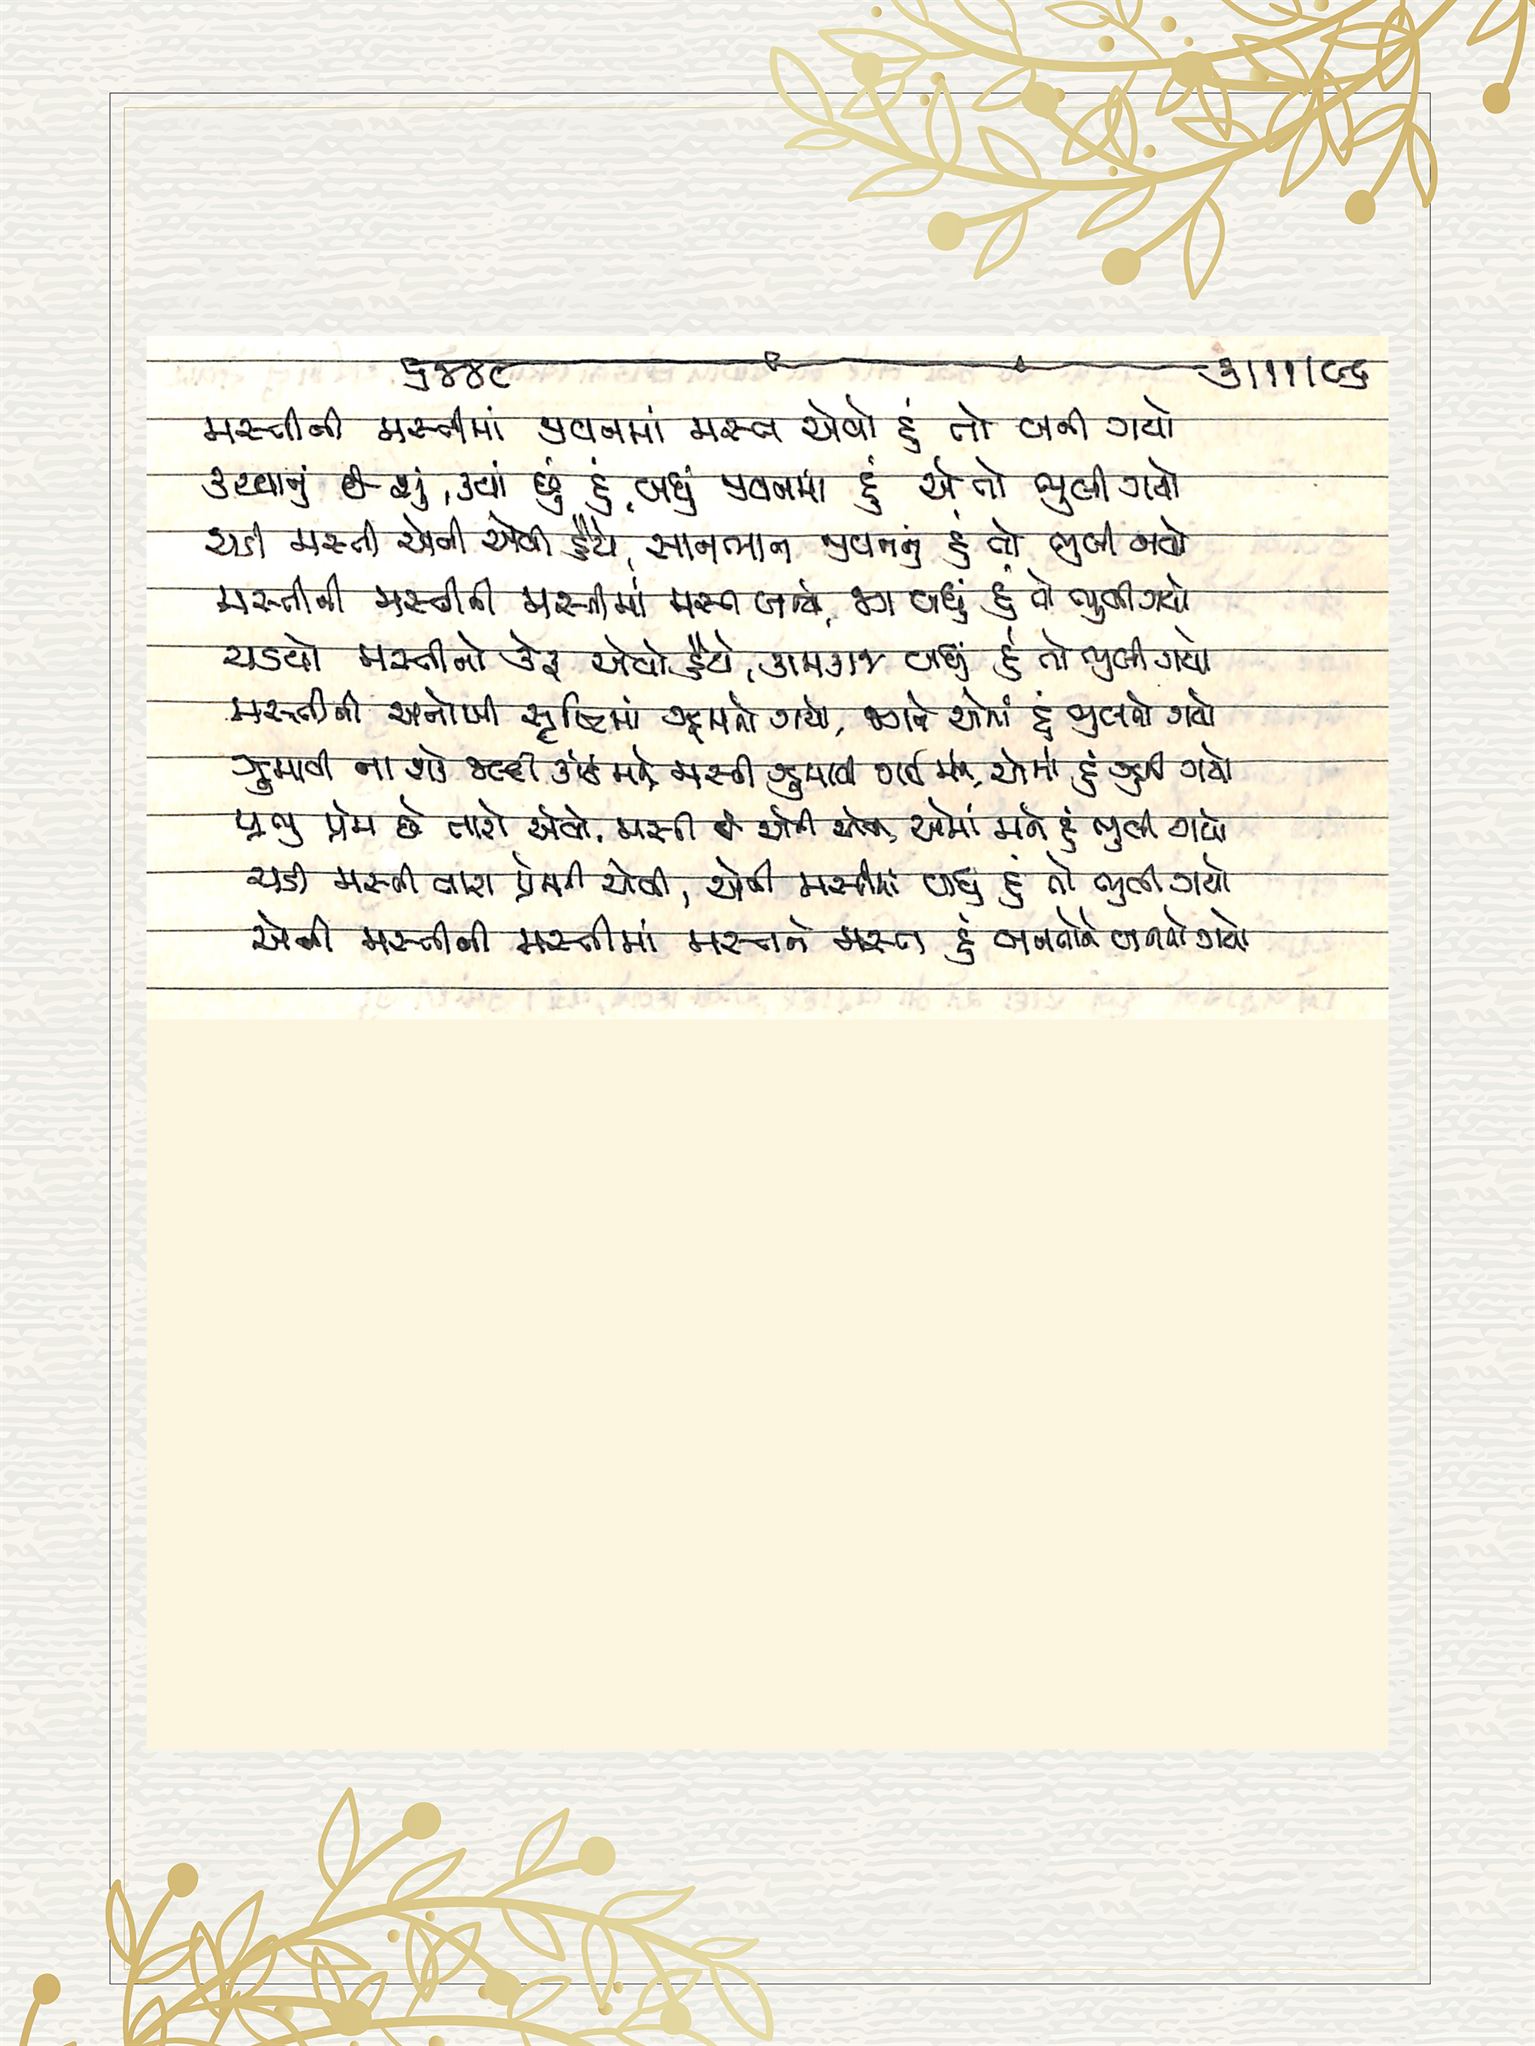 ૬૪૪૯ ૩।૧૧।૯૬
મસ્તીની મસ્તીમાં જીવનમાં મસ્ત એવો હું તો બની ગયો
કરવાનું છે શું, ક્યાં છું હું, બધું જીવનમાં હું એ તો ભુલી ગયો
ચડી મસ્તી એની એવી હૈયે, સાનભાન જીવનનું હું તો ભુલી ગયો
મસ્તીની મસ્તીની મસ્તીમાં મસ્ત બન્યો, જગ બધું હું તો ભુલી ગયો
ચડયો મસ્તીનો કેફ એવો હૈયે, કામકાજ બધું હું તો ભુલી ગયો
મસ્તીની અનોખી સૃષ્ટિમાં ઝૂમતો ગયો, જગને એમાં હું ભુલતો ગયો
ઝુમાવી ના શકે જલ્દી કોઈ મને, મસ્તી ઝુમાવી ગઈ મને, એમાં હું ઝુમી ગયો
પ્રભુ પ્રેમ છે તારો એવો, મસ્તી છે એની એવી, એમાં મને હું ભુલી ગયો
ચડી મસ્તી તારા પ્રેમની એવી, એવી મસ્તીમાં બધું હું તો ભુલી ગયો
એની મસ્તીની મસ્તીમાં મસ્તને મસ્ત હું બનતોને બનતો ગયો